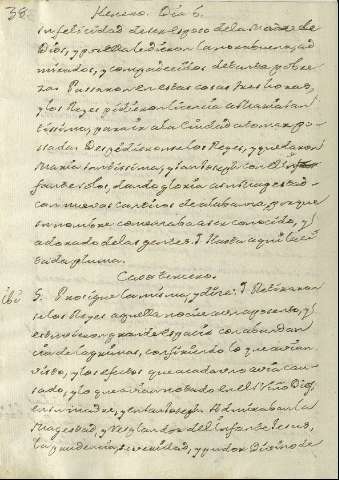 38. Henero. Dia 6.
infelicidad de ser esposo de la Madre de
Dios, y por ella le dieron la norabuena, ad
mirados, y compadecidos de tanta pobre
za. Passaron en estas cosas tres horas,
y los Reyes pidieron licencia a Maria San
tissima, para ir a la Ciudad a tomar po
sada. Despidieronse los Reyes, y quedaron
Maria Santissima, y Santo Joseph con el In
fante solos, dando gloria a su Magestad
con nuevos canticos de alabanza, porque
su nombre comenzaba a ser conocido, y
adorado de las gentes. Hasta aqui la ci
tada pluma.
Caso tercero.
ibi 5. Prosigue la misma, y dize: Retiraron
se los Reyes aquella noche a su aposento, y
estuvieron grande espacio con abundan
cia de lagrimas, confiriendo lo que avian
visto, y los efectos que a cada uno avia cau
sado, y lo que avian notado en el Niño Dios,
en su madre, y en Santo Joseph. Admiraban la
Magestad, y resplandor del Infante Jesus,
la prudencia, severidad, y pudor Divino de